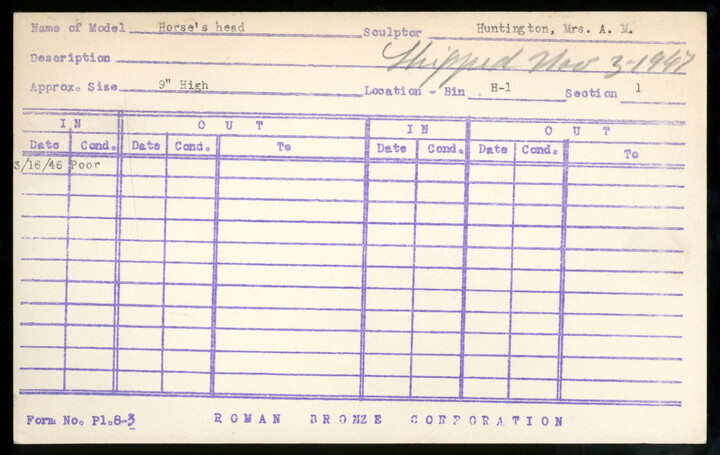 Name of Model Horse's head Sculptor Huntington, Mrs. A. M.
Description Shipped Nov 3-1947
Approx. Size 9" High Location - Bin H-1 Section 1
I N O U T I N O U T
Date Cond. Date Cond. To Date Cond. Date Cond. To
3/16/46 Poor
Form No. P1.8-3 ROMAN BRONZE CORPORATION